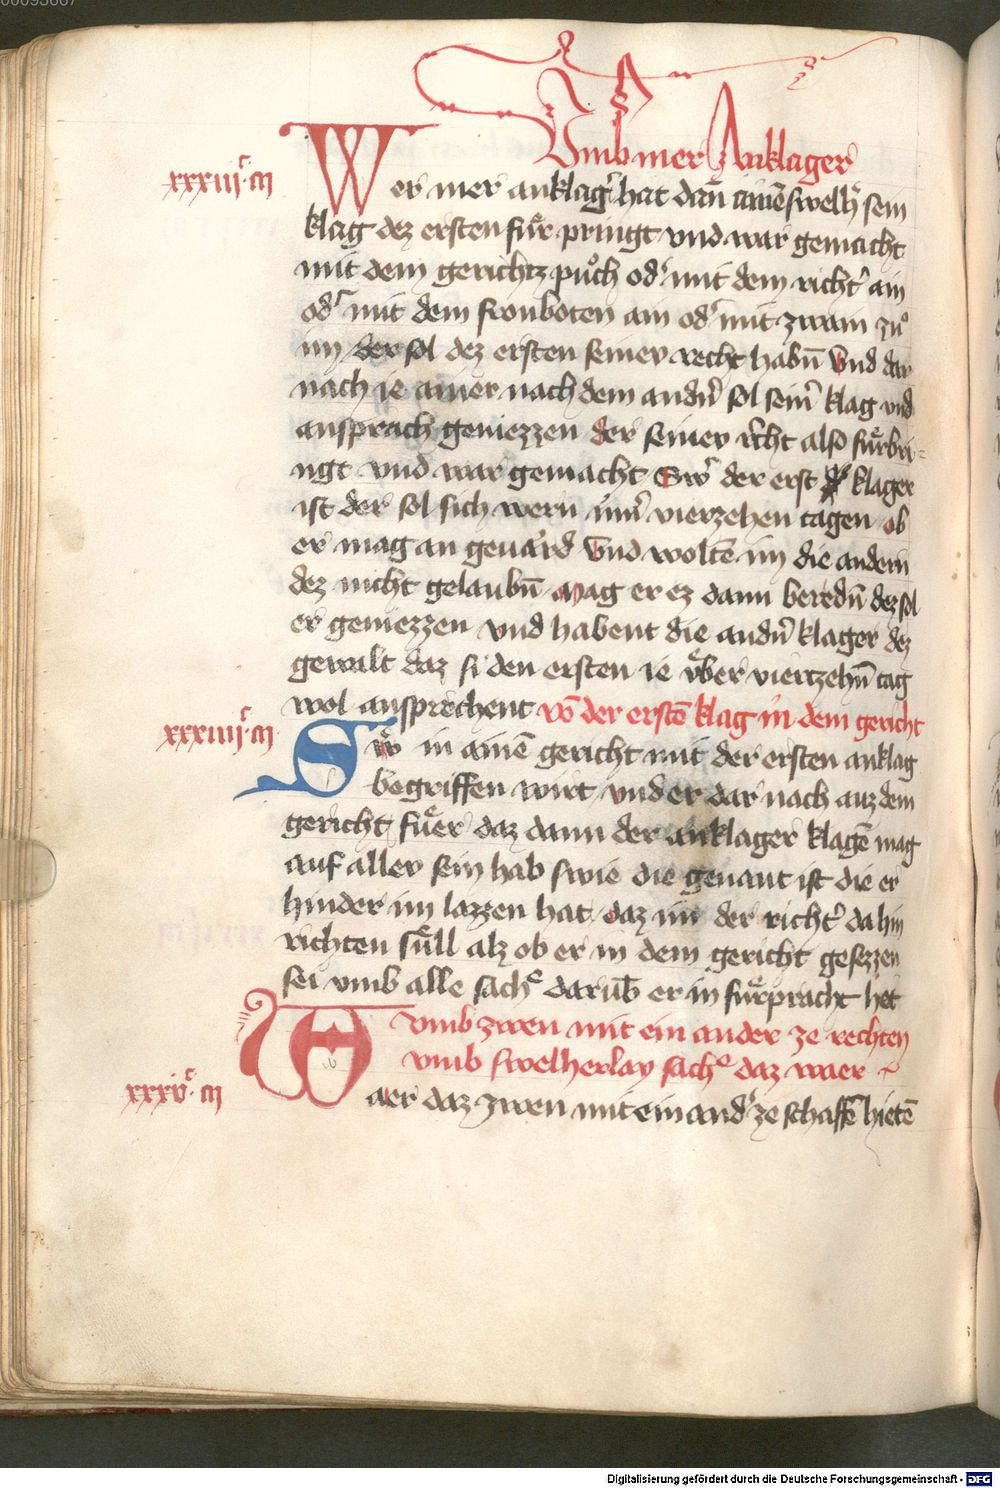 Vmb mer Anklager
xxxiijc m
Wer mer anklagr hat dan̄ ainē swelhr sein
klag dez ersten fuͤr pringt vnd war gemacht
mit dem gerichtz puͦch odr mit dem richtr ain
odr mit dem fronboten ain odr mit zwain zuͦ
im der sol dez ersten seinev recht habn̄ Vnd dar
nach ie ainer nach dem andrn sol seinr klag vnd
ansprach geniezzen der seinev rcht also fuͤrbri=
ngt vnd war gemacht Swr der erst klager
ist der sol sich wern inn̄r vierzehen tagen ob
er mag an geuärd Vnd woltē im die andern
dez nicht gelaubn̄ Mag er ez dann beredn̄ dez sol
er geniezzen vnd habent die andrn klager dez
gewalt daz si den ersten ie vͤber vierzehn̄ tag
wol ansprechent vō der erstē klag in dem gericht
xxxiiijc m
Swr in ainē gericht mit der ersten anklag
begriffen wirt vnd er dar nach auz dem
gericht fuͤer daz dann der anklager klagē mag
auf allev sein hab swie die genant ist die er
hinder im lazzen hat daz im der richtr dahin
richten suͤll alz ob er in dem gericht gesezzen
sei vmb alle sache darub̄ er in fuͤrpracht het
vmb zwen mit ein ander ze rechten
vmb swelherlay sache daz waer ~
xxxvc m
Waer daz zwen mit ein andr ze schaffē hietē
Digitalisierung gefördert durch die Deutsche Forschungsgemeinschaft - DFG